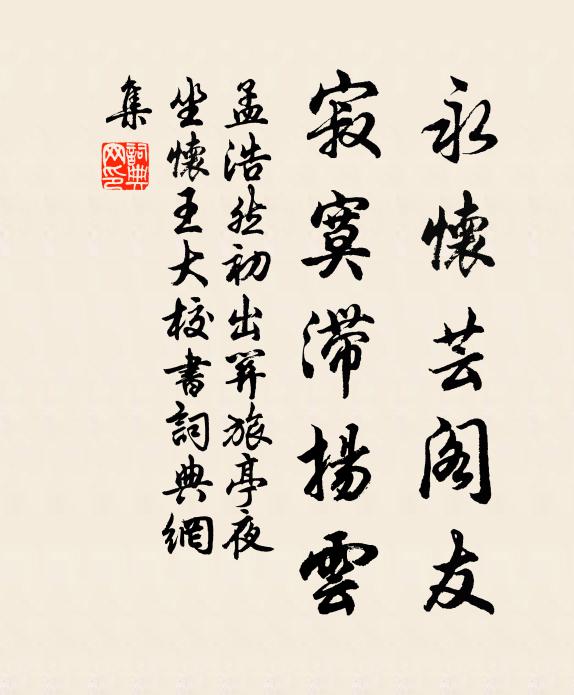 永懷芸阁友
寂寞滯揚雲
孟浩然初出関旅亭夜
坐懷王大校書詞典網
集
詞典网印